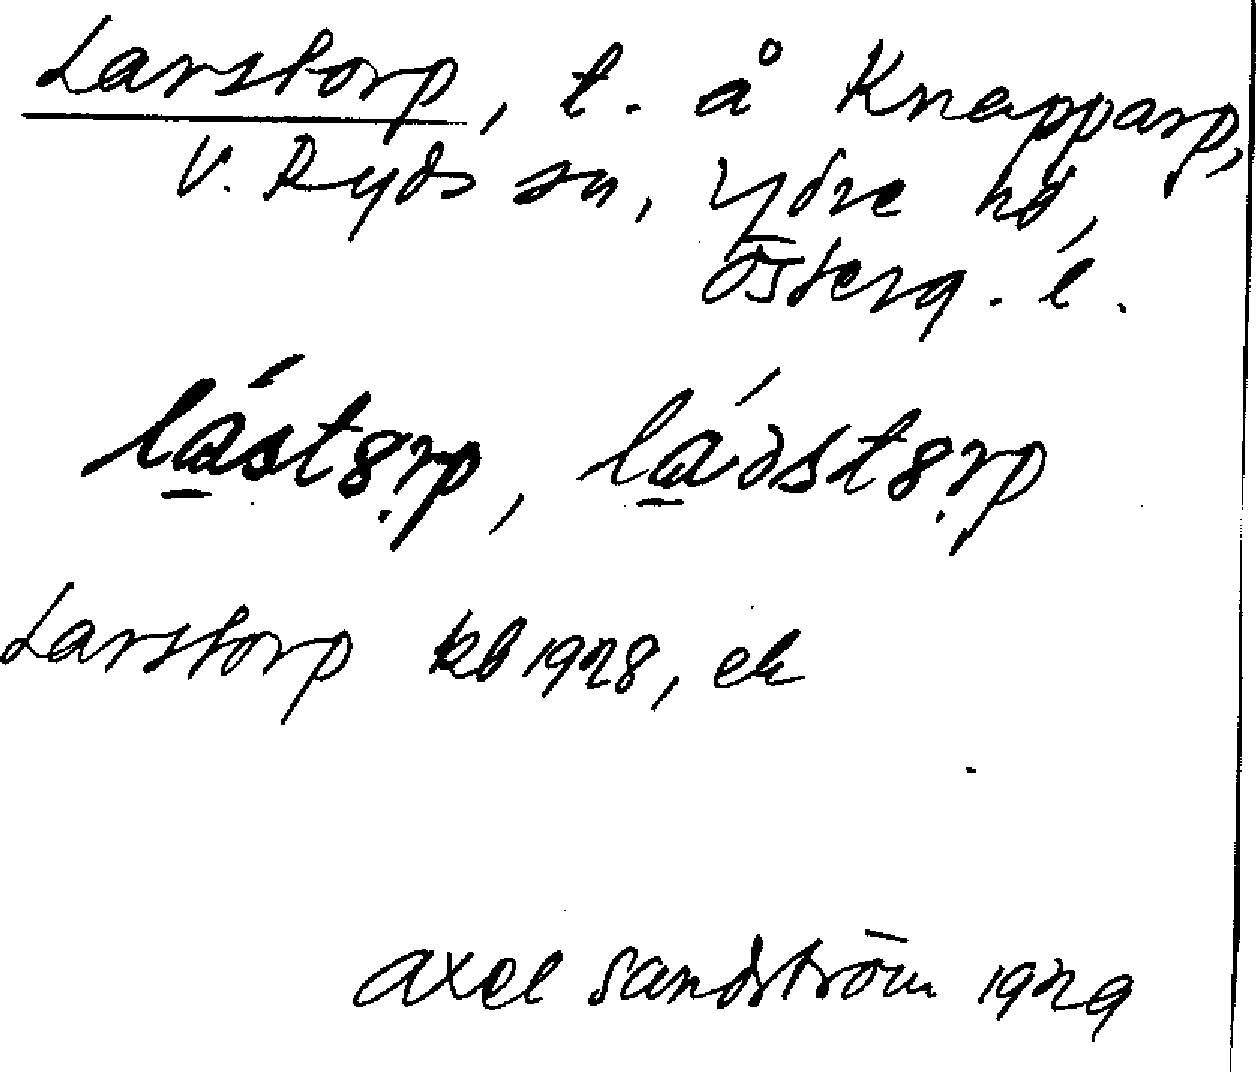 Larstorp, t. å Knapparp,
V. Ryds sn, Ydre hd,
Österg. l.
lástȣrp, láostȣrp
Larstorp kb 1928, ek
Axel Sandström 1929